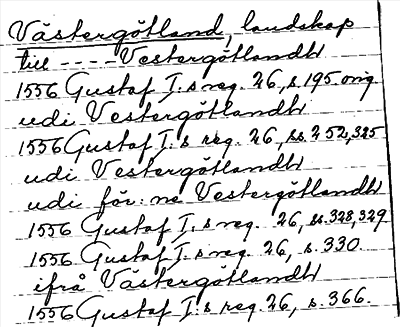 Västergötland, landskap
till ---- Vestergötlandh
1556 Gustaf I.s reg. 26, s. 195 orig
udi Vestergötlandh
1556 Gustaf I.s reg. 26, ss. 252, 325
udi Vestergötlandh
udi för:ne Vestergötlandh
1556 Gustaf I.s reg. 26, ss. 328, 329
1556 Gustaf I.s reg. 26, s. 330.
ifrå Västergötlandh
1556 Gustaf I.s reg. 26, s. 366.